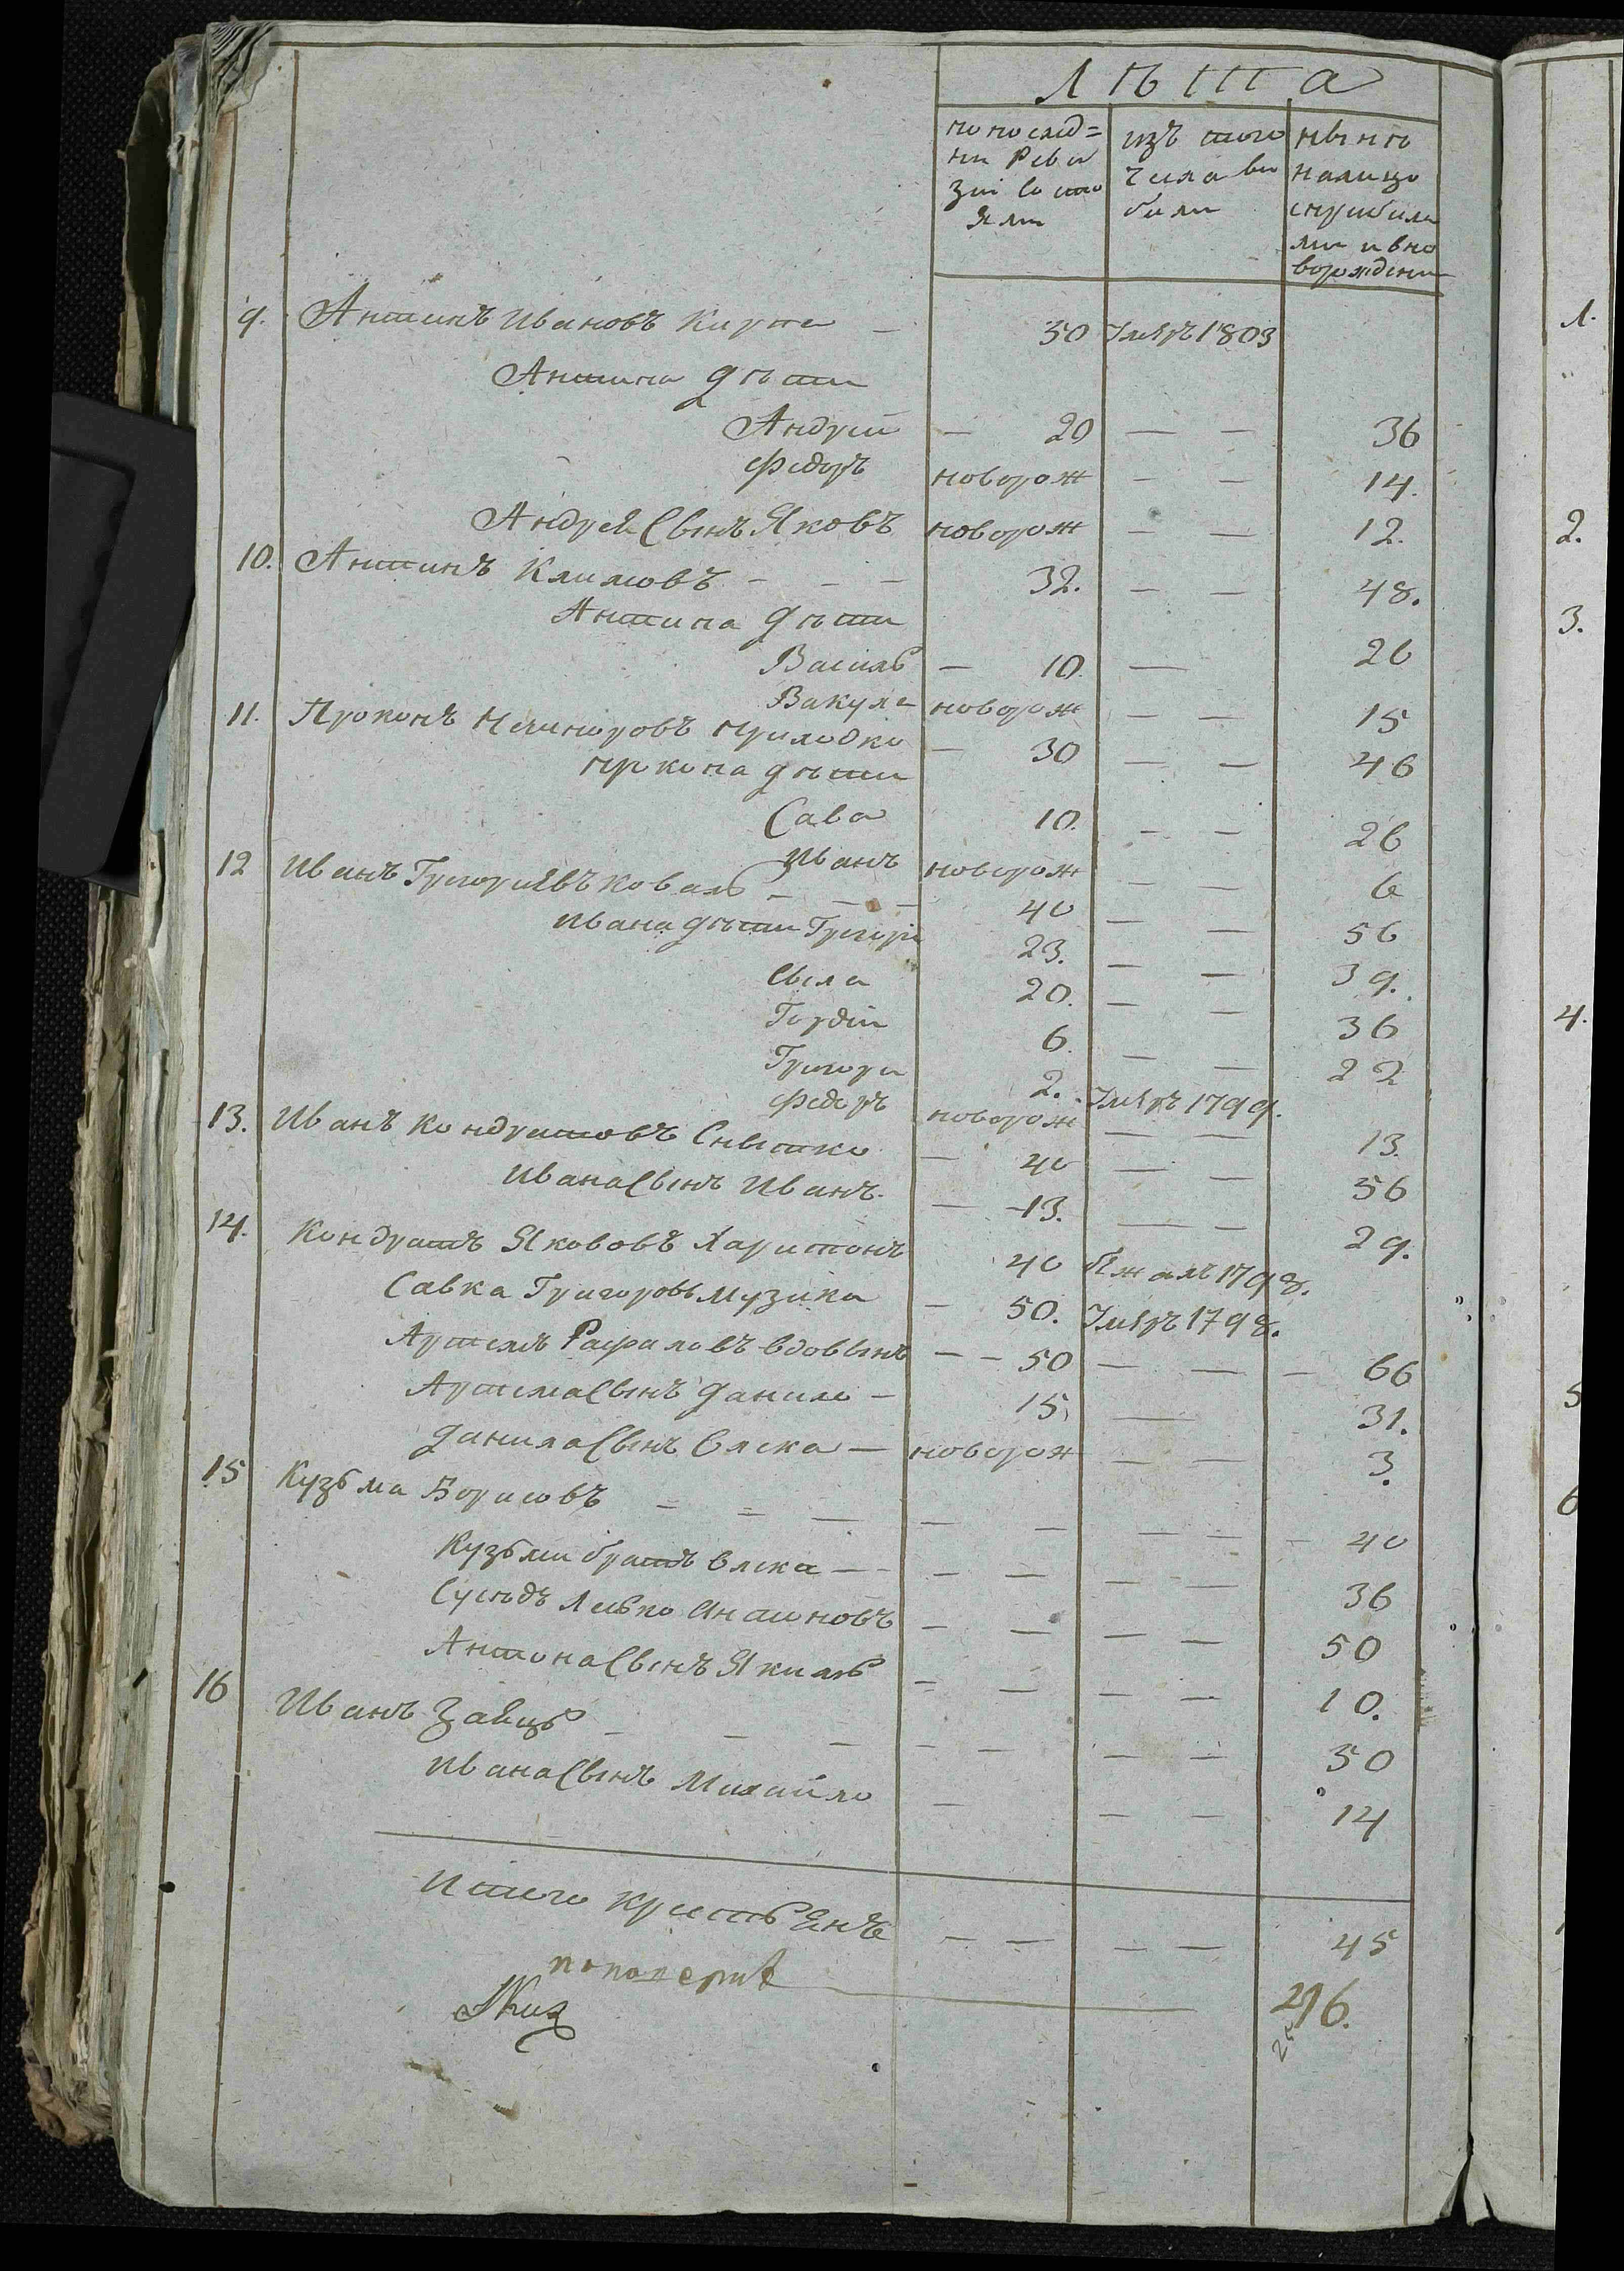 Лѣта
по послѣд= ни Реви зіи Состо яли
изъ того Числа ви били
нынѣ налицо списибили ми и вно ворождени
9. Антипъ Ивановъ Кирпа — 50 Умеръ 1803
Антипа дѣти
Андрей — 20 — — 36
Федоръ новорож — — 14.
Андрея Сынъ Яковъ новорож — — 12.
10. Антипъ Климовъ - — — 32. — — 48.
Антипа дѣти
Василь — 10. — 26
Вакула новорож — — 15
11. Прокопъ Нечипоровъ Приходко — 30 — — 46
Пркопа дѣти
Сава 10. — — 26
Иванъ новорож — — 6
12 Иванъ Григориевъ Коваль - — — 40 — — 56
Ивана дѣти Григори 23. — — 39.
Сыла 20. — — 36
Гордій 6. — — 22
Григори 2. Умеръ 1799.
Федоръ новорож — — 13.
13. Иванъ Кондратовъ Снѣтко — 40 — — 56
Ивана Сынъ Иванъ. — 13. — — 29.
14. Кондратъ Якововъ Харитонъ 40 Бжалъ 1798.
Савка Григоровъ Музика — 50. Умеръ 1798.
Артемъ Рафаловъ вдовынъ — — 50 — — — 66
Артема Сынъ Данило — 15. — 31.
Данила Сынъ Олека — новорож — — 3.
15 Кузьма Борисовъ — — — — — — — — 40
Кузьми братъ Олека — — — — — 36
Сусѣдъ Левко Антоновъ — — — — 50
Антона Сынъ Якимъ — — — — 10.
16 Иванъ Заяцъ — — — — — — — 50
Ивана Сынъ Михайло — — — 14
Итого крестьянъ — — — — 45
216.